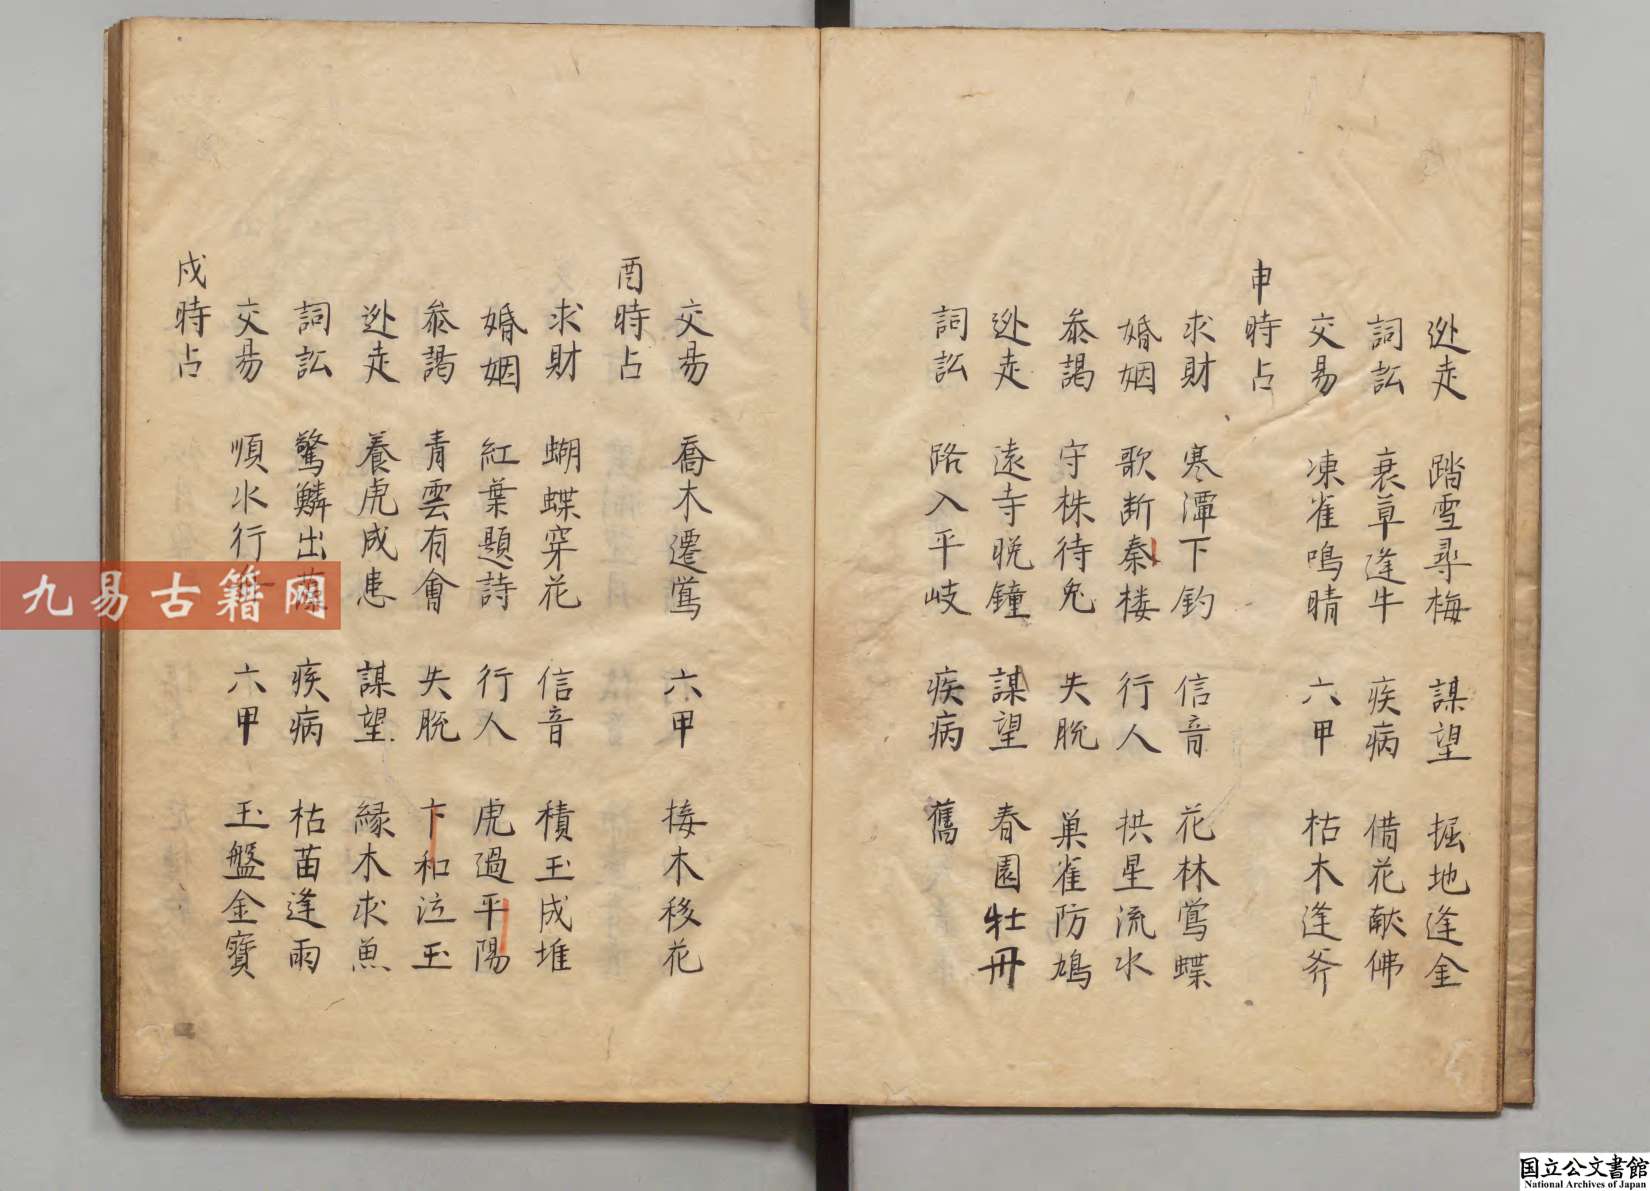 迯走 踏雪尋梅 謀望 掘地逢金
詞訟 衰草逢牛 疾病 借花献佛
交易 凍雀鳴晴 六甲 枯木逢斧
申時占
求財 寒潭下釣 信音 花林鶯蝶
婚姻 歌断秦楼 行人 拱星流水
叅謁 守株待兎 失脫 巢雀防鳩
迯走 遠寺晩鐘 謀望 春園牡丹
詞訟 路入平岐 疾病 舊
交易 喬木遷鶯 六甲 接木移花
酉時占
求財 蝴蝶穿花 信音 積玉成堆
婚姻 紅葉題詩 行人 虎過平陽
叅謁 青雲有會 失脫 卞和泣玉
迯走 養虎成患 謀望 緑木求魚
詞訟 驚鱗出 疾病 枯苗逢雨
交易 順水行 六甲 玉盤金寶
戍時占
九易古籍网
国立公文書館
National Archives of Japan